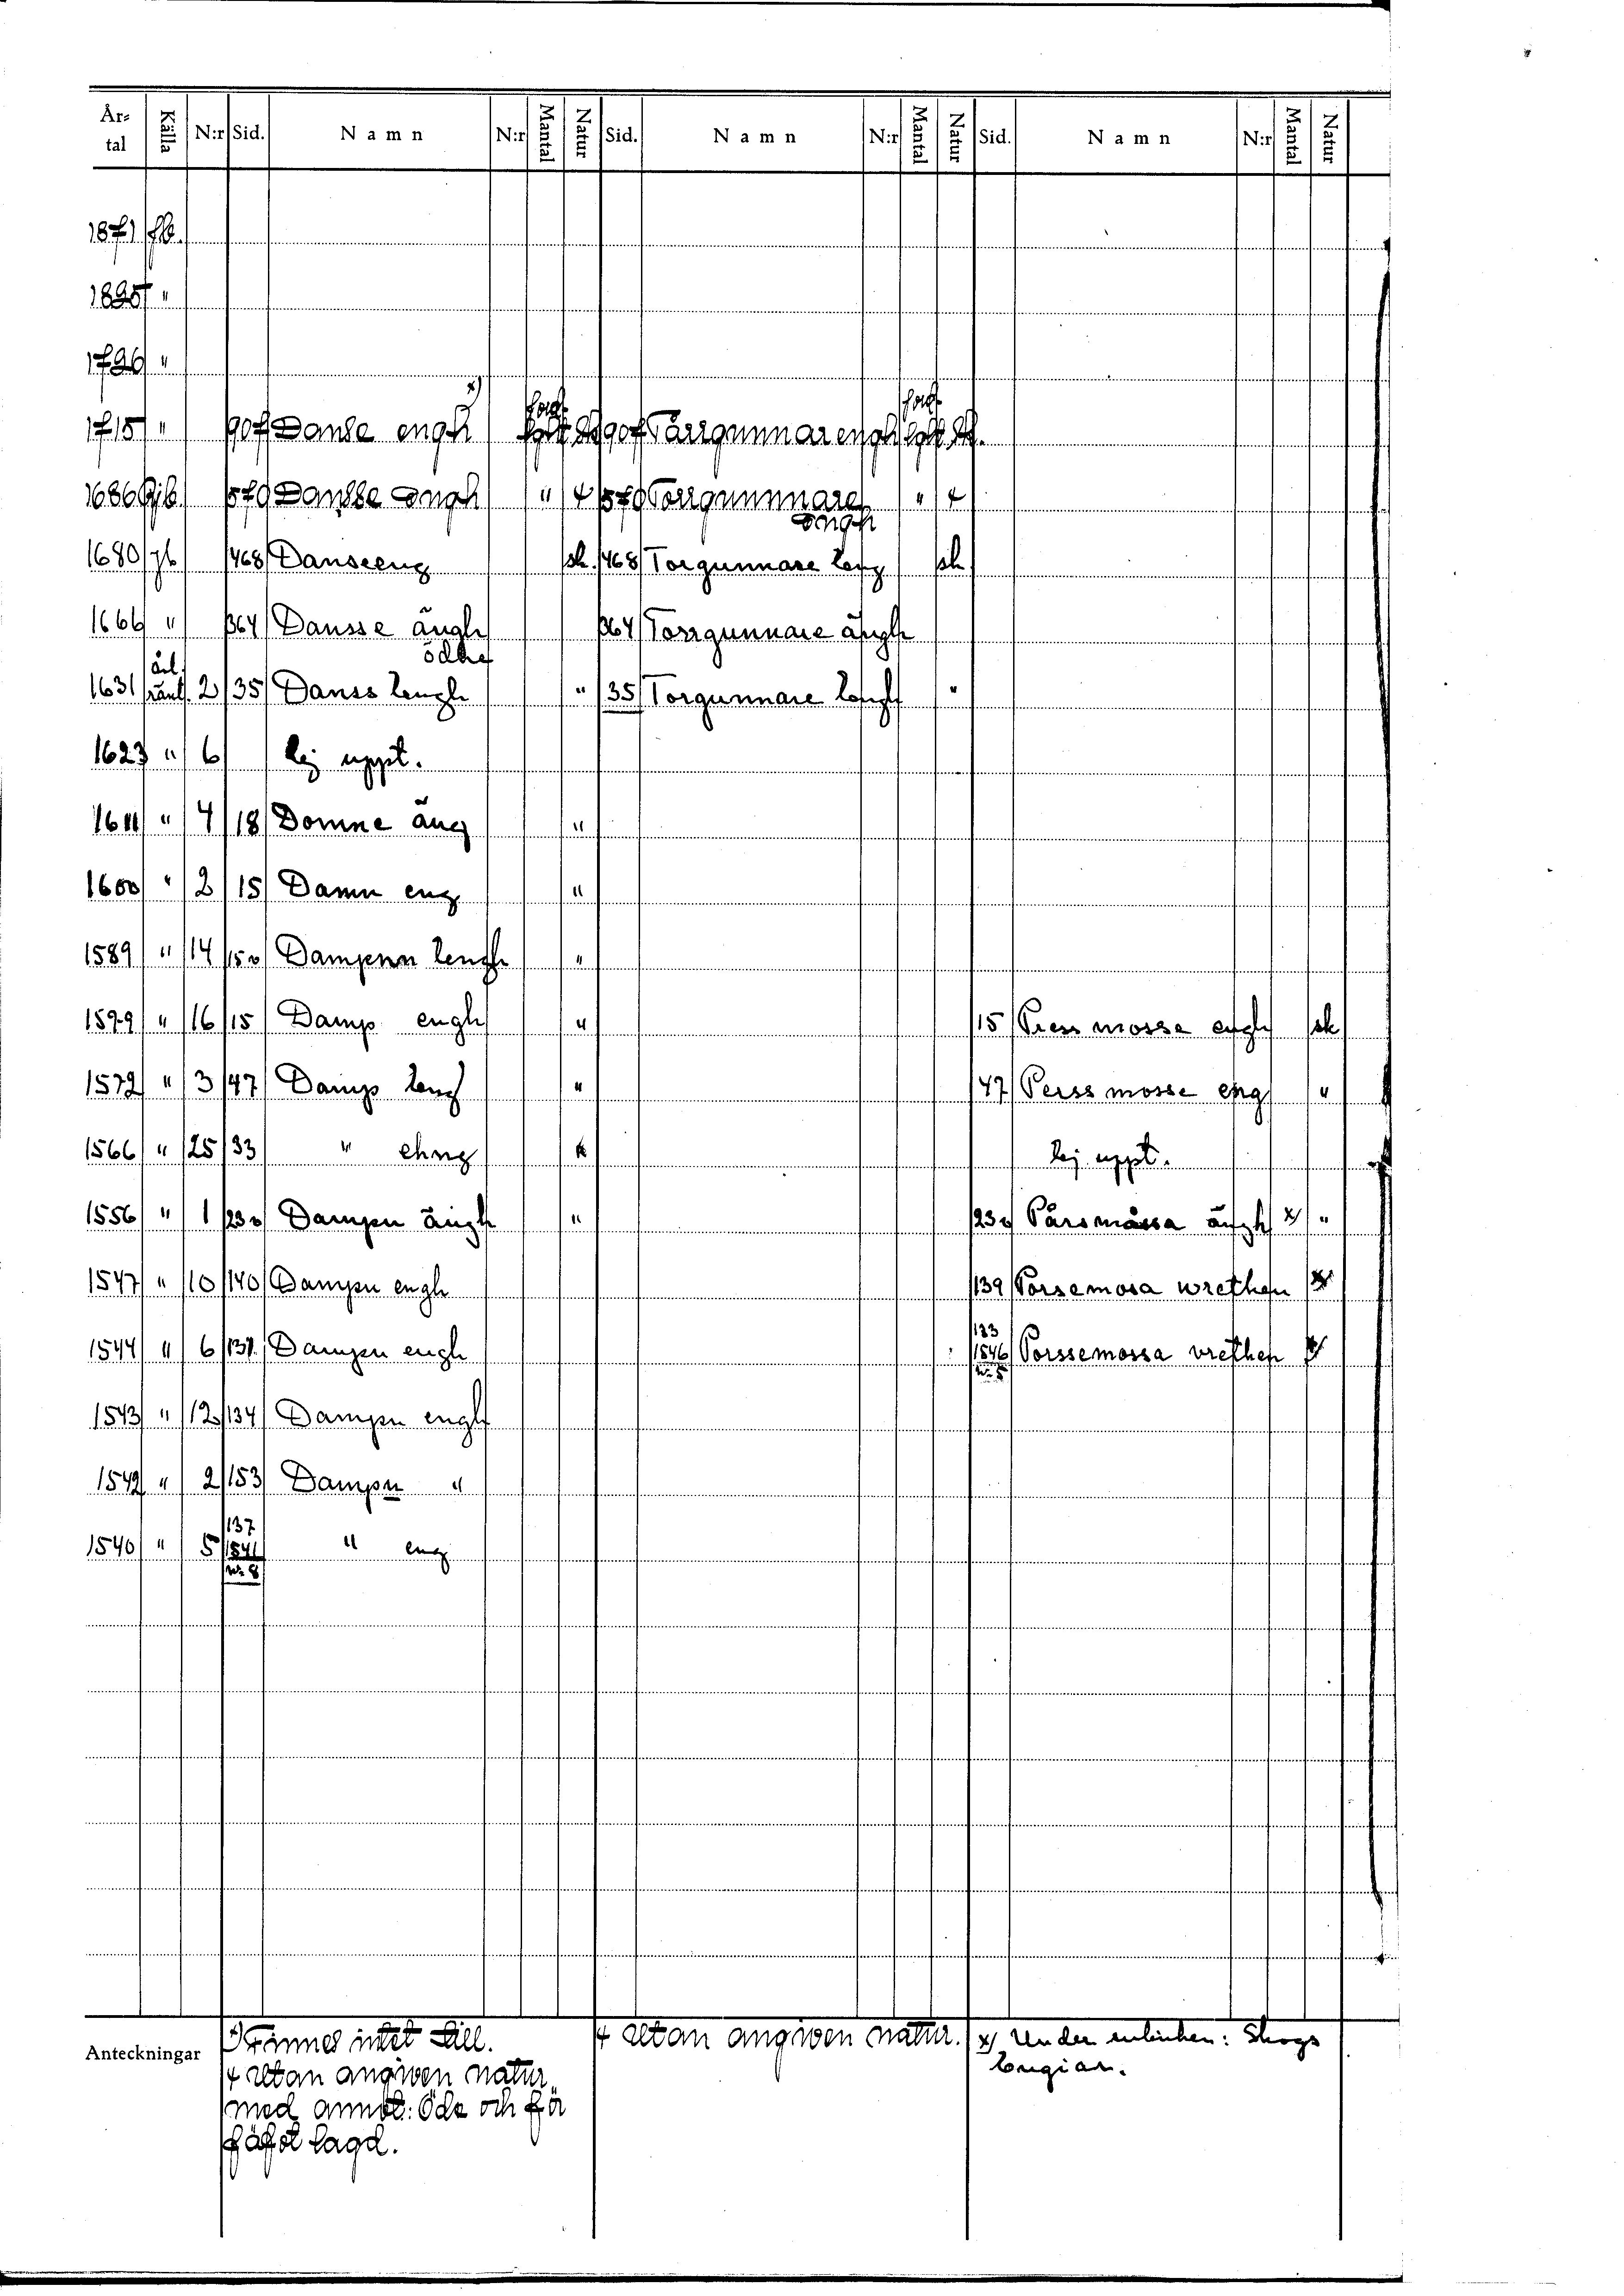 År-
tal Källa N:r Sid. Namn N:r Mantal Natur Sid. Namn N:r Mantal Natur Sid. Namn N:r Mantal Natur
1871 jb.
1825 "
1726 "
x)
1715 " 907 Danse engh sk 907 Tårrgunnar engh sk.
1686 jb. 570 Dansse engh " + 570 Torrgunnnare " +
engh
1680 jb 468 Danseeng sk. 468 Torgunnare Eeng sk
1666 " 364 Dansse ängh 364 Torrgunnare ängh
ödhe
1631 ränt. 2 35 Danss Eengh " 35 Torgunnare Eengh "
1623 " 6 Ej uppt.
1611 " 4 18 Domne äng "
1600 " 2 15 Damn eng "
1589 " 14 15v Dampnn Eengh "
1579 " 16 15 Damp engh " 15 Press mosse engh sk
1572 " 3 47 Damp Eeng " 47 Perss mosse eng "
1566 " 25 33 " ehng Ej uppt.
1556 " 1 23v Dampn ängh " 23v Pårsmåssa ängh x/ "
1547 " 10 140 Dampn engh 139 Porsemosa wrethen x/
133
1544 " 6 131 Dampn engh 1546 Porssemossa vrethen x/
nr 5
1543 " 12 134 Dampn engh
1542 " 2 153 Dampn "
137
1540 " 5 1541 " eng
nr 8
Anteckningar
x) Finnes intet till.
+ utan angiven natur
med annot: Öde och för
fäfot lagd.
+ utan angiven natur.
x/ Under rubriken: Skogs
Engiar.